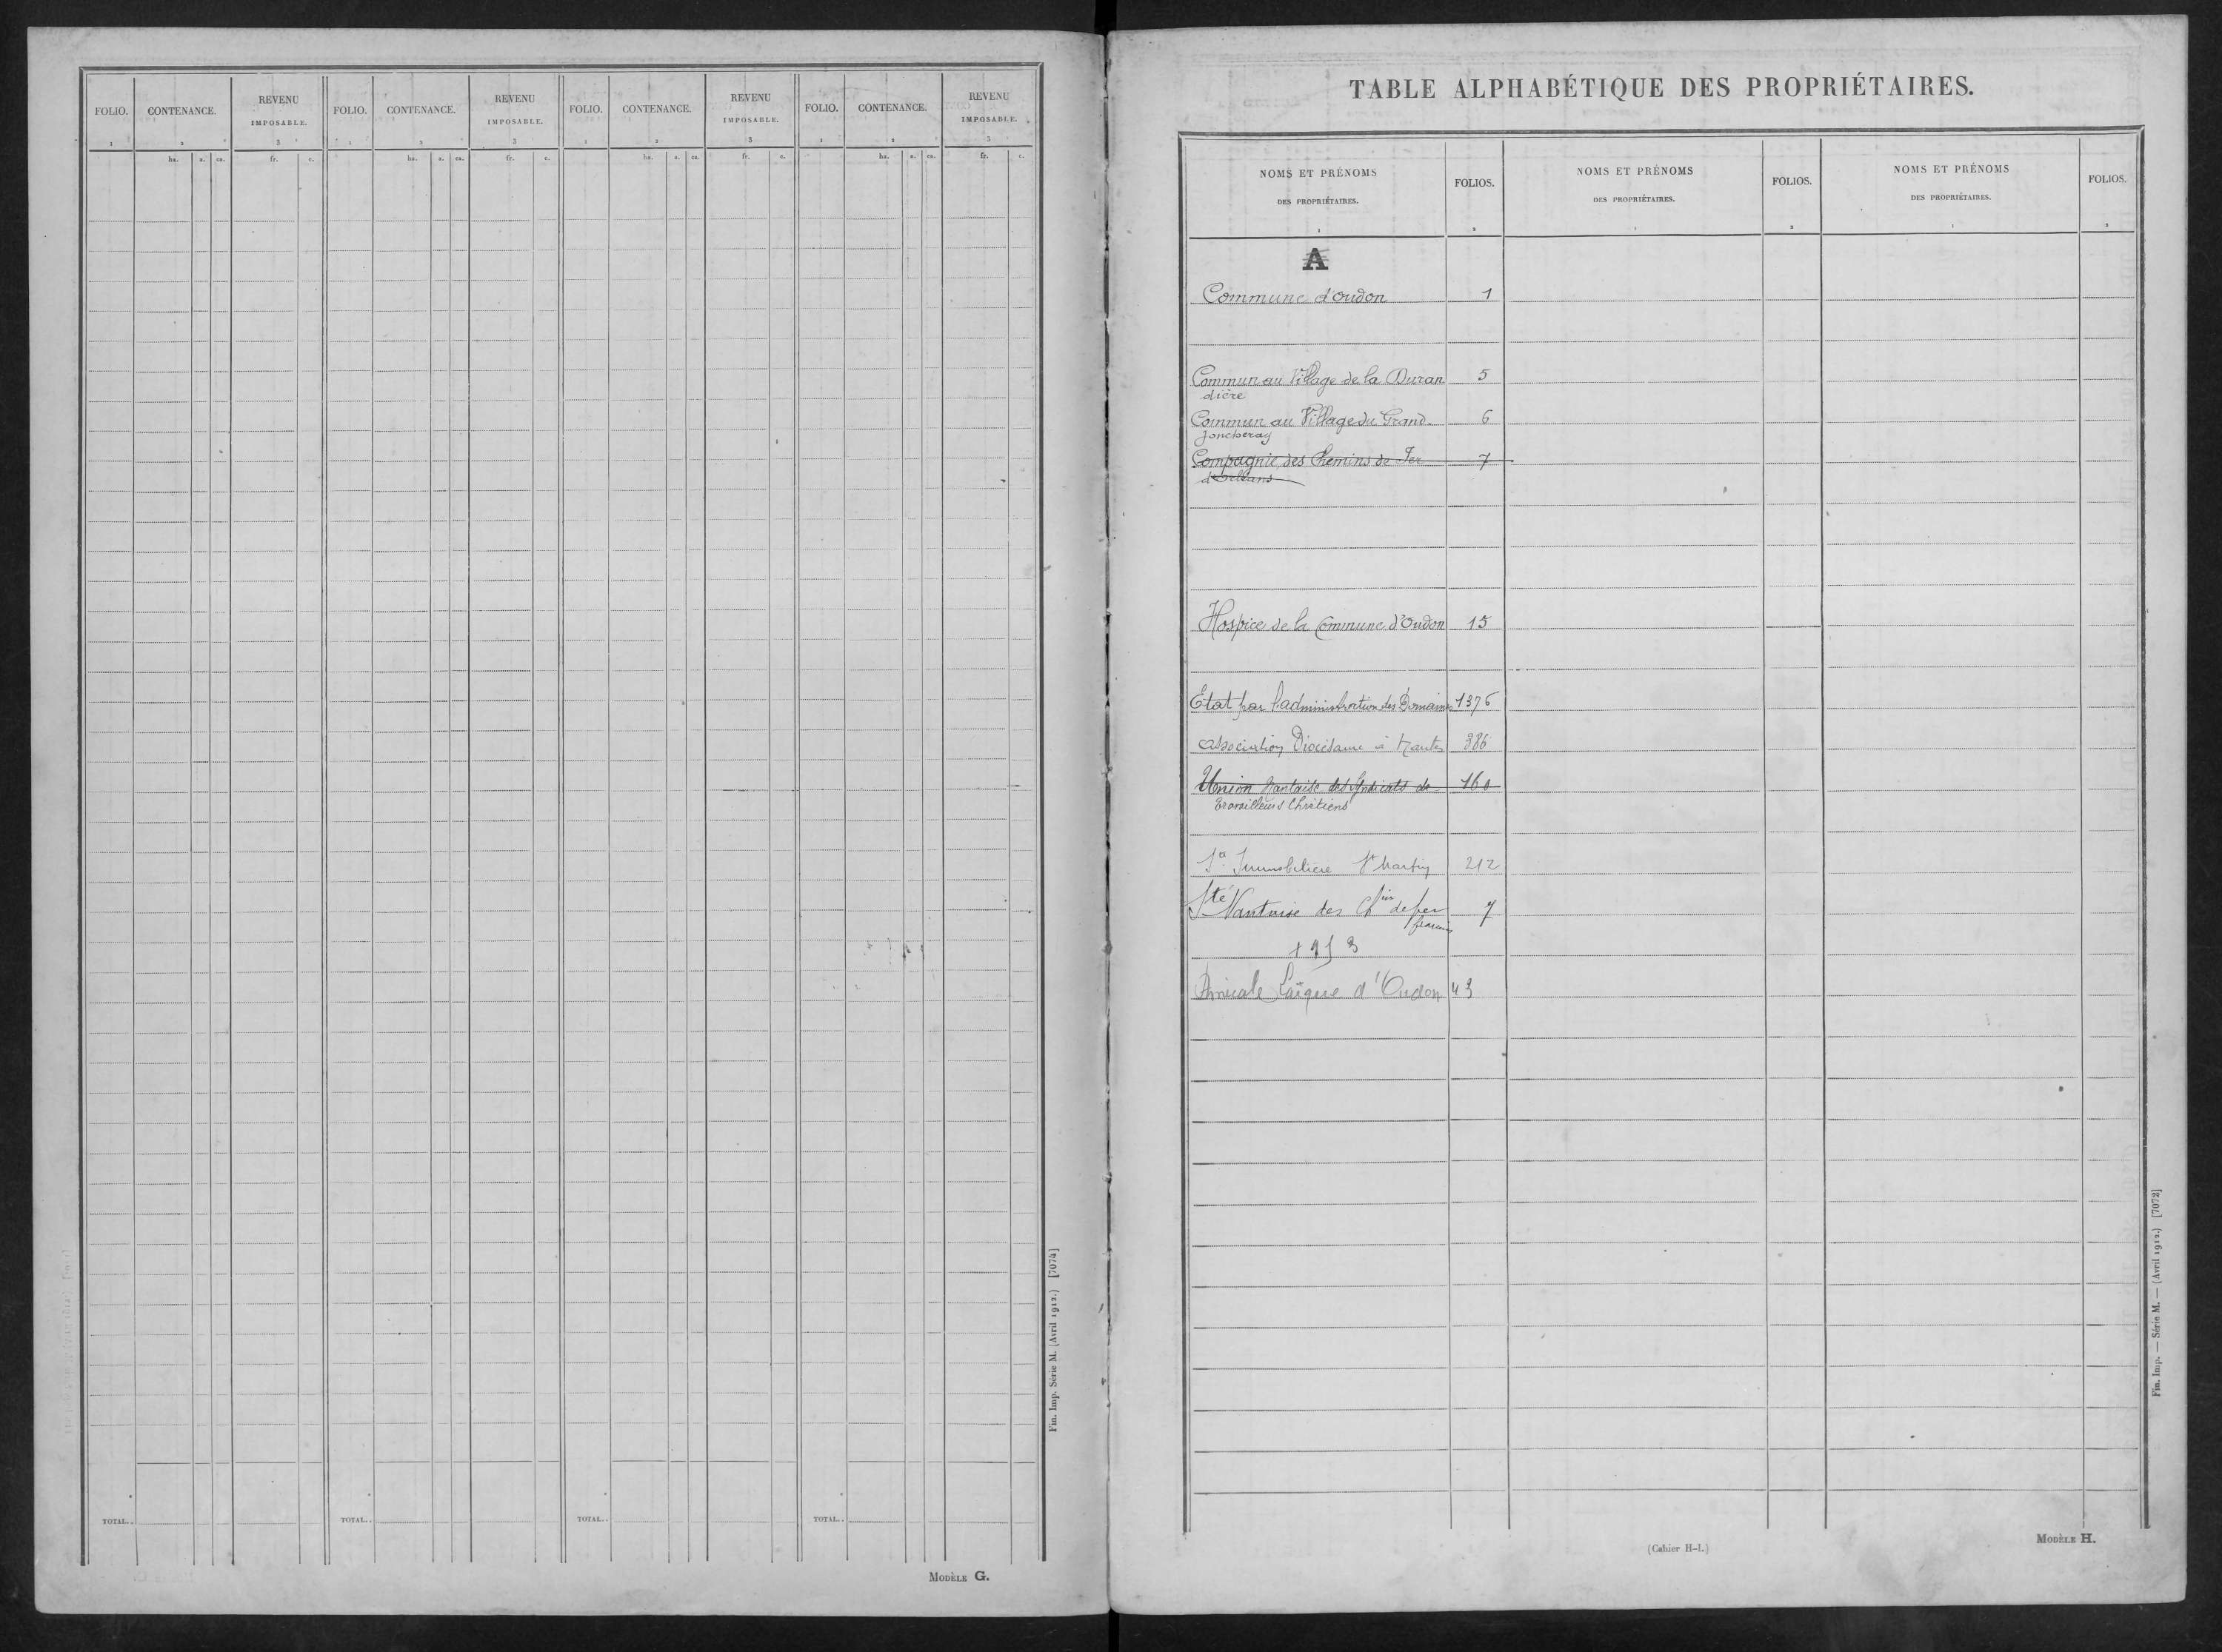 FOLIO. CONTENANCE. REVENU IMPOSABLE. FOLIO. CONTENANCE. REVENU IMPOSABLE. FOLIO. CONTENANCE. REVENU IMPOSABLE. FOLIO. CONTENANCE. REVENU IMPOSABLE.
1 2 3 1 2 3 1 2 3 1 2 3
ha. a. ca. fr. c. ha. a. ca. fr. c. ha. a. ca. fr. c. ha. a. ca. fr. c.
TOTAL.. TOTAL.. TOTAL.. TOTAL..
Fin. Imp. Série M. (Avril 1912.) [7074]
MODÈLE G.
TABLE ALPHABÉTIQUE DES PROPRIÉTAIRES.
NOMS ET PRÉNOMS DES PROPRIÉTAIRES. FOLIOS. NOMS ET PRÉNOMS DES PROPRIÉTAIRES. FOLIOS. NOMS ET PRÉNOMS DES PROPRIÉTAIRES. FOLIOS.
1 2 1 2 1 2
A
Commune d'Oudon 1
Commun au Village de la Duran 5
dière
Commun au Village du Grand 6
Joncheray
Compagnie des Chemins de Fer 7
d'Orléans
Hospice de la Commune d'Oudon 15
Etat par l'administration des Domaines 1376
Association Diocésaine à Nantes 386
Union Nantaise des Syndicats de 160
Travailleurs Chrétiens
Sté Immobilière St Martin 212
Sté Nantaise des Chins de fer 7
français
Amicale Laïque d'Oudon 43
(Cahier H-I.)
MODÈLE H.
Fin. Imp. — Série M. — (Avril 1912.) [7072]